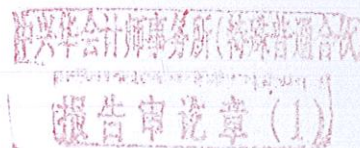 兴华会计师事务所(特殊普通合伙
报告审讫章(1)